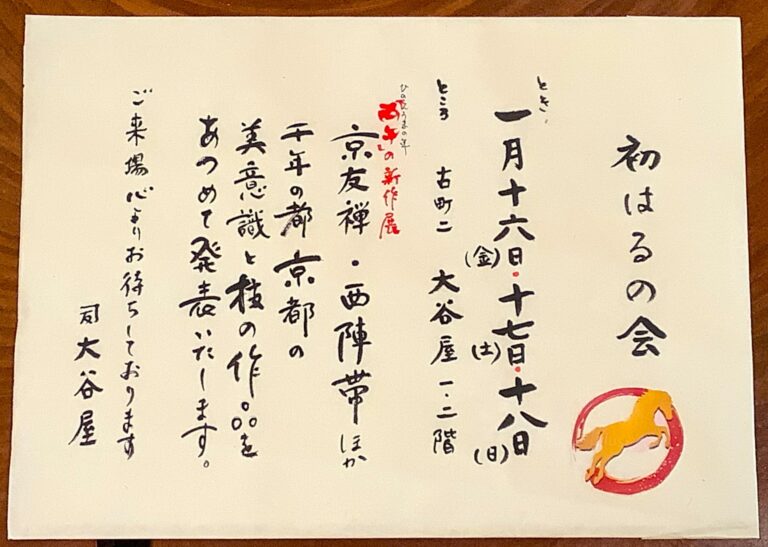 初はるの会
とき、一月十六日(金)・十七日(土)・十八日(日)
ところ 古町二 大谷屋一・二階
ひのえうまの年
丙午の新作展
京友禅・西陣帯ほか
千年の都京都の
美意識と技の作品を
あつめて発表いたします。
ご来場心よりお待ちしております
大谷屋